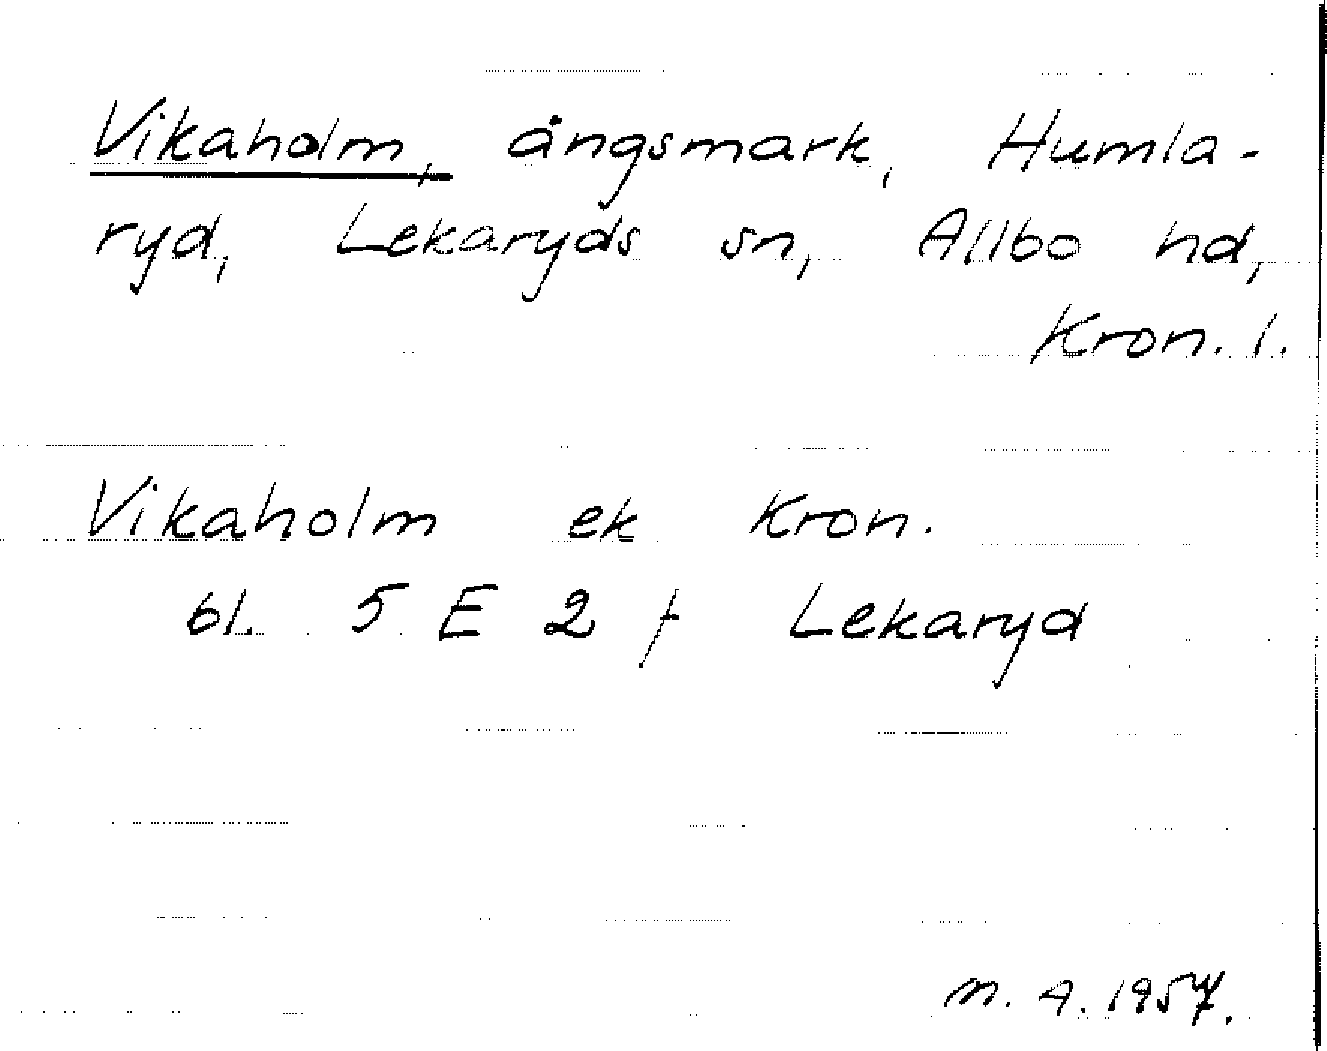 Vikaholm, ängsmark, Humla-
ryd, Lekaryds sn, Allbo hd,
Kron. l.
Vikaholm ek Kron.
bl. 5 E 2 f Lekaryd
M. A. 1957.